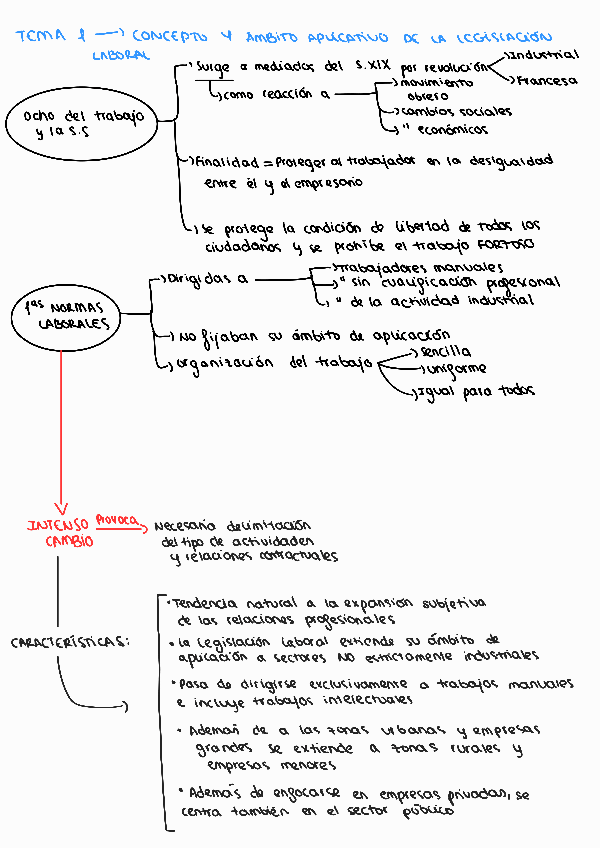 TEMA 1 → CONCEPTO Y ÁMBITO APLICATIVO DE LA LEGISLACIÓN
LABORAL
Dcho del trabajo
y la S.S
Surge a mediados del S.XIX por revolución
Industrial
Francesa
como reacción a
movimiento
obrero
cambios sociales
" económicos
Finalidad = Proteger al trabajador en la desigualdad
entre él y el empresario
Se protege la condición de libertad de todos los
ciudadanos y se prohíbe el trabajo FORZOSO
1as NORMAS
LABORALES
Dirigidas a
trabajadores manuales
" sin cualificación profesional
" de la actividad industrial
NO fijaban su ámbito de aplicación
organización del trabajo
sencilla
uniforme
Igual para todos
INTENSO
CAMBIO
Provoca
Necesaria delimitación
del tipo de actividaden
y relaciones contractuales
CARACTERÍSTICAS:
• Tendencia natural a la expansión subjetiva
de las relaciones profesionales
• La Legislación Laboral extiende su ámbito de
aplicación a sectores NO estrictamente industriales
• Pasa de dirigirse exclusivamente a trabajos manuales
e incluye trabajos intelectuales
• Además de a las zonas urbanas y empresas
grandes se extiende a zonas rurales y
empresas menores
• Además de enfocarse en empresas privadas, se
centra también en el sector público